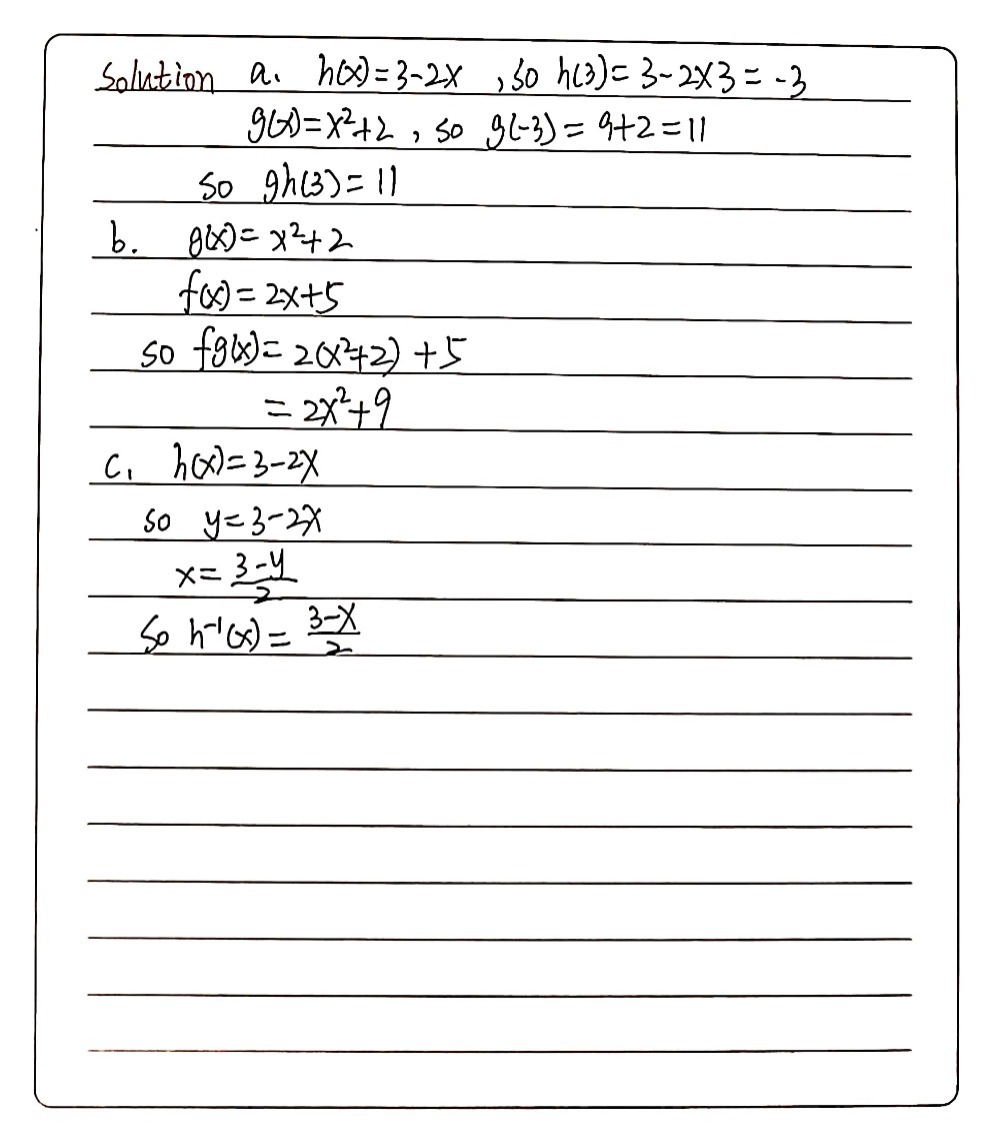 Solution a. h(x)=3-2x , so h(3)= 3-2×3 = -3
g(x)=x²+2 , so g(-3) = 9+2=11
so gh(3)= 11
b. g(x)= x²+2
f(x)= 2x+5
so fg(x)= 2(x²+2) +5
= 2x²+9
c. h(x)=3-2x
so y=3-2x
x= \frac{3-y}{2}
So h⁻¹(x)= \frac{3-x}{2}